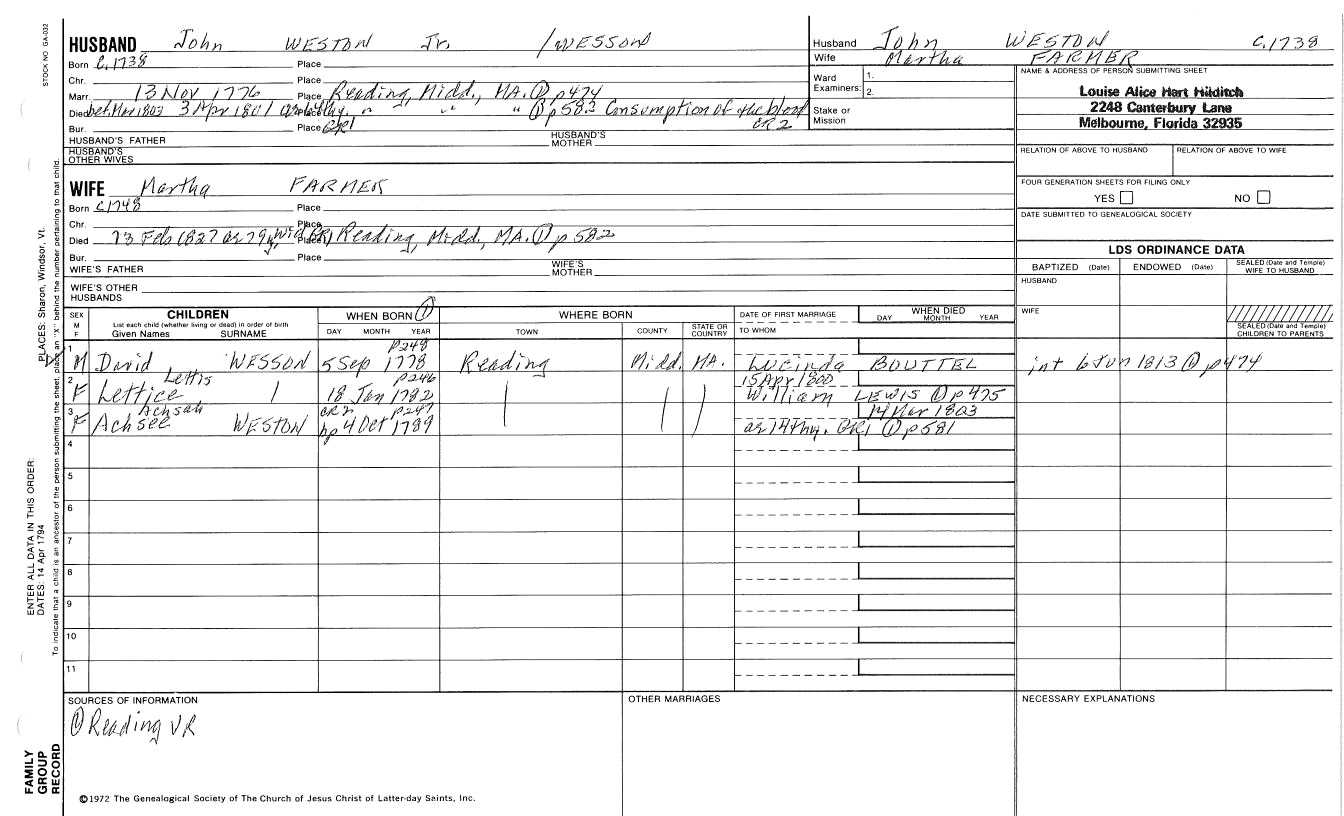 STOCK NO GA-032
HUSBAND John WESTON Jr. /WESSON
Husband John WESTON C.1738
Wife Martha FARMER
Born C.1738 Place
Chr. Place
Marr. 13 Nov 1776 Place Reading, Midd., MA. ① p474
Died bef. Mar 1803 3 Apr 1801 Place " " " ① p582 Consumption of the blood
Bur. Place GR1 CR2
HUSBAND'S FATHER HUSBAND'S MOTHER
HUSBAND'S OTHER WIVES
Ward 1.
Examiners: 2.
Stake or Mission
NAME & ADDRESS OF PERSON SUBMITTING SHEET
Louise Alice Hart Hilditch
2248 Canterbury Lane
Melbourne, Florida 32935
RELATION OF ABOVE TO HUSBAND RELATION OF ABOVE TO WIFE
FOUR GENERATION SHEETS FOR FILING ONLY
YES NO
DATE SUBMITTED TO GENEALOGICAL SOCIETY
WIFE Martha FARMER
Born C1748 Place
Chr. Place
Died 13 Feb 1827 ae 79y, wid. Place Reading, Midd., MA. ① p 582
Bur. Place
WIFE'S FATHER WIFE'S MOTHER
WIFE'S OTHER HUSBANDS
LDS ORDINANCE DATA
BAPTIZED (Date) ENDOWED (Date) SEALED (Date and Temple) WIFE TO HUSBAND
HUSBAND
WIFE
SEALED (Date and Temple) CHILDREN TO PARENTS
SEX M F
CHILDREN
List each child (whether living or dead) in order of birth
Given Names SURNAME
WHEN BORN ①
DAY MONTH YEAR
WHERE BORN
TOWN COUNTY STATE OR COUNTRY
DATE OF FIRST MARRIAGE
TO WHOM
WHEN DIED
DAY MONTH YEAR
1 p248
M David WESSON 5 Sep 1778 Reading Midd. MA. Lucinda BOUTTEL int 6 Jun 1813 ① p474
2 Lettis p246 15 Apr 1800
F Lettice 18 Jan 1782 William LEWIS ① p475
3 Achsah CR2 p247 14 Mar 1803
F Achsee WESTON bp 4 Oct 1789 ae 14thy. GR1 ① p581
4
5
6
7
8
9
10
11
SOURCES OF INFORMATION
① Reading VR
OTHER MARRIAGES
NECESSARY EXPLANATIONS
©1972 The Genealogical Society of The Church of Jesus Christ of Latter-day Saints, Inc.
ENTER ALL DATA IN THIS ORDER:
DATES: 14 Apr 1794
PLACES: Sharon, Windsor, Vt.
To indicate that a child is an ancestor of the person submitting the sheet, place an "X" behind the number pertaining to that child.
FAMILY
GROUP
RECORD